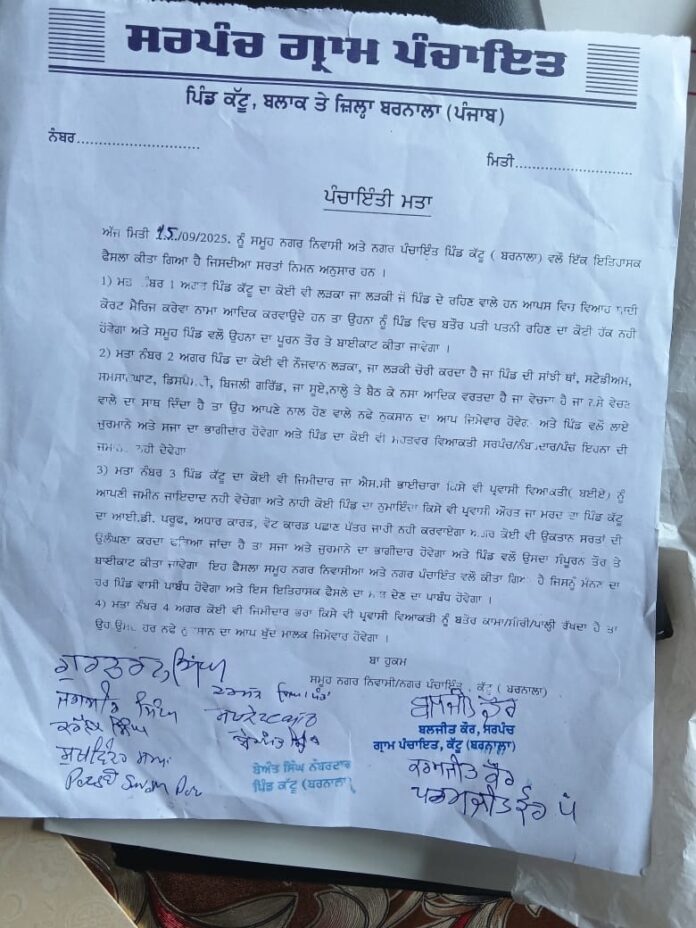 ਸਰਪੰਚ ਗ੍ਰਾਮ ਪੰਚਾਇਤ
ਪਿੰਡ ਕੱਟੂ, ਬਲਾਕ ਤੇ ਜ਼ਿਲ੍ਹਾ ਬਰਨਾਲਾ (ਪੰਜਾਬ)
ਨੰਬਰ..........................
ਮਿਤੀ..........................
ਪੰਚਾਇੰਤੀ ਮਤਾ
ਅੱਜ ਮਿਤੀ 15/09/2025. ਨੂੰ ਸਮੂਹ ਨਗਰ ਨਿਵਾਸੀ ਅਤੇ ਨਗਰ ਪੰਚਾਇੰਤ ਪਿੰਡ ਕੱਟੂ ( ਬਰਨਾਲਾ) ਵਲੋ ਇੱਕ ਇਤਿਹਾਸਕ
ਫੈਸਲਾ ਕੀਤਾ ਗਿਆ ਹੈ ਜਿਸਦੀਆ ਸਰਤਾਂ ਨਿਮਨ ਅਨੁਸਾਰ ਹਨ ।
1) ਮਤਾ ਨੰਬਰ 1 ਅਗਰ ਪਿੰਡ ਕੱਟੂ ਦਾ ਕੋਈ ਵੀ ਲੜਕਾ ਜਾ ਲੜਕੀ ਜੋ ਪਿੰਡ ਦੇ ਰਹਿਣ ਵਾਲੇ ਹਨ ਆਪਸ ਵਿਚ ਵਿਆਹ ਸ਼ਾਦੀ
ਕੋਰਟ ਮੈਰਿਜ ਕਰੇਵਾ ਨਾਮਾ ਆਦਿਕ ਕਰਵਾਉਦੇ ਹਨ ਤਾ ਉਹਨਾ ਨੂੰ ਪਿੰਡ ਵਿਚ ਬਤੌਰ ਪਤੀ ਪਤਨੀ ਰਹਿਣ ਦਾ ਕੋਈ ਹੱਕ ਨਹੀ
ਹੋਵੇਗਾ ਅਤੇ ਸਮੂਹ ਪਿੰਡ ਵਲੋ ਉਹਨਾ ਦਾ ਪੂਰਨ ਤੌਰ ਤੇ ਬਾਈਕਾਟ ਕੀਤਾ ਜਾਵੇਗਾ ।
2) ਮਤਾ ਨੰਬਰ 2 ਅਗਰ ਪਿੰਡ ਦਾ ਕੋਈ ਵੀ ਨੌਜਵਾਨ ਲੜਕਾ, ਜਾ ਲੜਕੀ ਚੋਰੀ ਕਰਦਾ ਹੈ ਜਾ ਪਿੰਡ ਦੀ ਸਾਂਝੀ ਥਾਂ, ਸਟੇਡੀਅਮ,
ਸਮਸਾਨਘਾਟ, ਡਿਸਪੈਂਸਰੀ, ਬਿਜਲੀ ਗਰਿੱਡ, ਜਾ ਸੂਏ,ਨਾਲ੍ਹੇ ਤੇ ਬੈਠ ਕੇ ਨਸਾ ਆਦਿਕ ਵਰਤਦਾ ਹੈ ਜਾ ਵੇਚਦਾ ਹੈ ਜਾ ਨਸੇ ਵੇਚਣ
ਵਾਲੇ ਦਾ ਸਾਥ ਦਿੰਦਾ ਹੈ ਤਾ ਉਹ ਆਪਣੇ ਨਾਲ ਹੋਣ ਵਾਲੇ ਨਫੇ ਨੁਕਸਾਨ ਦਾ ਆਪ ਜਿਮੇਵਾਰ ਹੋਵੇਗਾ ਅਤੇ ਪਿੰਡ ਵਲੋ ਲਾਏ
ਜੁਰਮਾਨੇ ਅਤੇ ਸਜਾ ਦਾ ਭਾਗੀਦਾਰ ਹੋਵੇਗਾ ਅਤੇ ਪਿੰਡ ਦਾ ਕੋਈ ਵੀ ਮੋਹਤਵਰ ਵਿਆਕਤੀ ਸਰਪੰਚ/ਨੰਬਰਦਾਰ/ਪੰਚ ਇਹਨਾ ਦੀ
ਨਹੀ ਦੇਵੇਗਾ
3) ਮਤਾ ਨੰਬਰ 3 ਪਿੰਡ ਕੱਟੂ ਦਾ ਕੋਈ ਵੀ ਜਿਮੀਦਾਰ ਜਾ ਐਸ.ਸੀ ਭਾਈਚਾਰਾ ਕਿਸੇ ਵੀ ਪ੍ਰਵਾਸੀ ਵਿਆਕਤੀ( ਬਈਏ) ਨੂੰ
ਆਪਣੀ ਜਮੀਨ ਜਾਇਦਾਦ ਨਹੀ ਵੇਚੇਗਾ ਅਤੇ ਨਾਹੀ ਕੋਈ ਪਿੰਡ ਦਾ ਨੁਮਾਇੰਦਾ ਕਿਸੇ ਵੀ ਪ੍ਰਵਾਸੀ ਔਰਤ ਜਾ ਮਰਦ ਦਾ ਪਿੰਡ ਕੱਟੂ
ਦਾ ਆਈ.ਡੀ. ਪਰੂਫ, ਅਧਾਰ ਕਾਰਡ, ਵੋਟ ਕਾਰਡ ਪਛਾਣ ਪੱਤਰ ਜਾਰੀ ਨਹੀ ਕਰਵਾਏਗਾ ਅਗਰ ਕੋਈ ਵੀ ਉਕਤਾਨ ਸਰਤਾਂ ਦੀ
ਉਲੰਘਣਾ ਕਰਦਾ ਫੜਿਆ ਜਾਂਦਾ ਹੈ ਤਾ ਸਜਾ ਅਤੇ ਜੁਰਮਾਨੇ ਦਾ ਭਾਗੀਦਾਰ ਹੋਵੇਗਾ ਅਤੇ ਪਿੰਡ ਵਲੋ ਉਸਦਾ ਸੰਪੂਰਨ ਤੌਰ ਤੇ
ਬਾਈਕਾਟ ਕੀਤਾ ਜਾਵੇਗਾ ਇਹ ਫੈਸਲਾ ਸਮੂਹ ਨਗਰ ਨਿਵਾਸੀਆ ਅਤੇ ਨਗਰ ਪੰਚਾਇੰਤ ਵਲੋ ਕੀਤਾ ਗਿਆ ਹੈ ਜਿਸਨੂੰ ਮੰਨਣ ਦਾ
ਹਰ ਪਿੰਡ ਵਾਸੀ ਪਾਬੰਧ ਹੋਵੇਗਾ ਅਤੇ ਇਸ ਇਤਿਹਾਸਕ ਫੈਸਲੇ ਦਾ ਸਾਥ ਦੇਣ ਦਾ ਪਾਬੰਧ ਹੋਵੇਗਾ ।
4) ਮਤਾ ਨੰਬਰ 4 ਅਗਰ ਕੋਈ ਵੀ ਜਿਮੀਦਾਰ ਭਰਾ ਕਿਸੇ ਵੀ ਪ੍ਰਵਾਸੀ ਵਿਆਕਤੀ ਨੂੰ ਬਤੌਰ ਕਾਮਾ/ਸੀਰੀ/ਪਾਲ੍ਹੀ ਰੱਖਦਾ ਹੈ ਤਾ
ਉਹ ਉਸਦੇ ਹਰ ਨਫੇ ਨੁਕਸਾਨ ਦਾ ਆਪ ਖੁੱਦ ਮਾਲਕ ਜਿਮੇਵਾਰ ਹੋਵੇਗਾ ।
ਬਾ ਹੁਕਮ
ਸਮੂਹ ਨਗਰ ਨਿਵਾਸੀ/ਨਗਰ ਪੰਚਾਇੰਤ ਕੱਟੂ ( ਬਰਨਾਲਾ)
ਗੁਰਚਰਨ ਸਿੰਘ
ਜਗਜੀਤ ਸਿੰਘ
ਸਿੰਘ
ਬੇਅੰਤ ਸਿੰਘ
ਬਲਜੀਤ ਕੌਰ
ਬਲਜੀਤ ਕੌਰ, ਸਰਪੰਚ
ਗ੍ਰਾਮ ਪੰਚਾਇਤ, ਕੱਟੂ (ਬਰਨਾਲਾ)
ਬੇਅੰਤ ਸਿੰਘ ਨੰਬਰਦਾਰ
ਪਿੰਡ ਕੱਟੂ (ਬਰਨਾਲਾ)
ਕਰਮਜੀਤ ਕੌਰ
ਪਰਮਜੀਤ ਕੌਰ ਪੰ